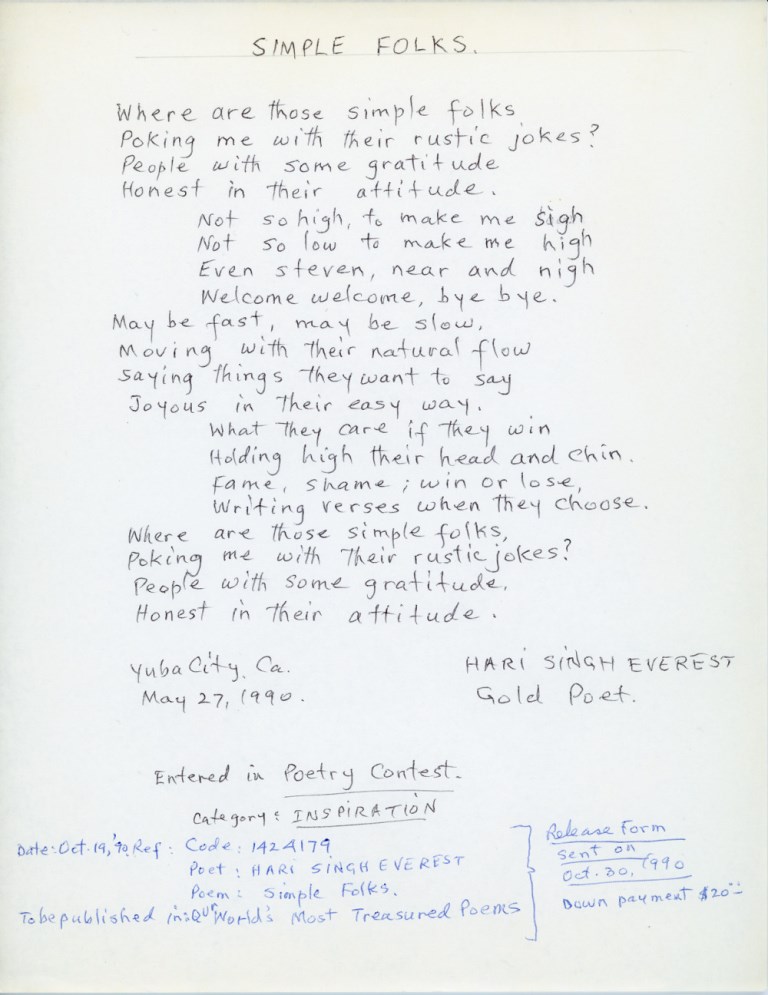 SIMPLE FOLKS.
Where are those simple folks
Poking me with their rustic jokes?
People with some gratitude
Honest in their attitude.
Not so high, to make me sigh
Not so low to make me high
Even steven, near and nigh
Welcome welcome, bye bye.
May be fast, may be slow,
Moving with their natural flow
saying things they want to say
Joyous in their easy way.
What they care if they win
Holding high their head and chin.
Fame, shame; win or lose,
Writing verses when they choose.
Where are those simple folks,
Poking me with their rustic jokes?
People with some gratitude,
Honest in their attitude.
Yuba City, Ca.
May 27, 1990.
HARI SINGH EVEREST
Gold Poet.
Entered in Poetry Contest.
Category: INSPIRATION
Date: Oct. 19, '90, Ref: Code: 1424179
Poet: HARI SINGH EVEREST
Poem: Simple Folks.
To be published in: Our World's Most Treasured Poems
Release Form
sent on
Oct. 30, 1990
Down payment $20